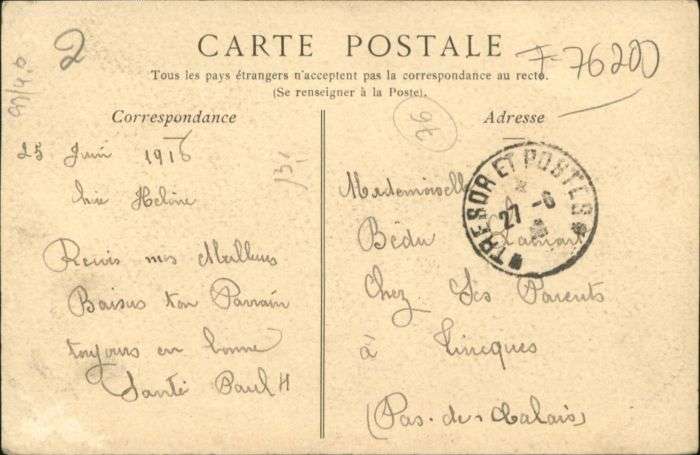 2
CARTE POSTALE
F-76200
Tous les pays étrangers n'acceptent pas la correspondance au recto.
(Se renseigner à la Poste).
Correspondance
Adresse
76
25 Juin 1916
Helène
Reçois mes Meilleurs
Baisers ton Parrain
toujours en bonne
Santé Paul H
Mademoiselle
Bédu
Chez Ses Parents
à Tincques
(Pas-de-Calais)
TRESOR ET POSTES
27 -6